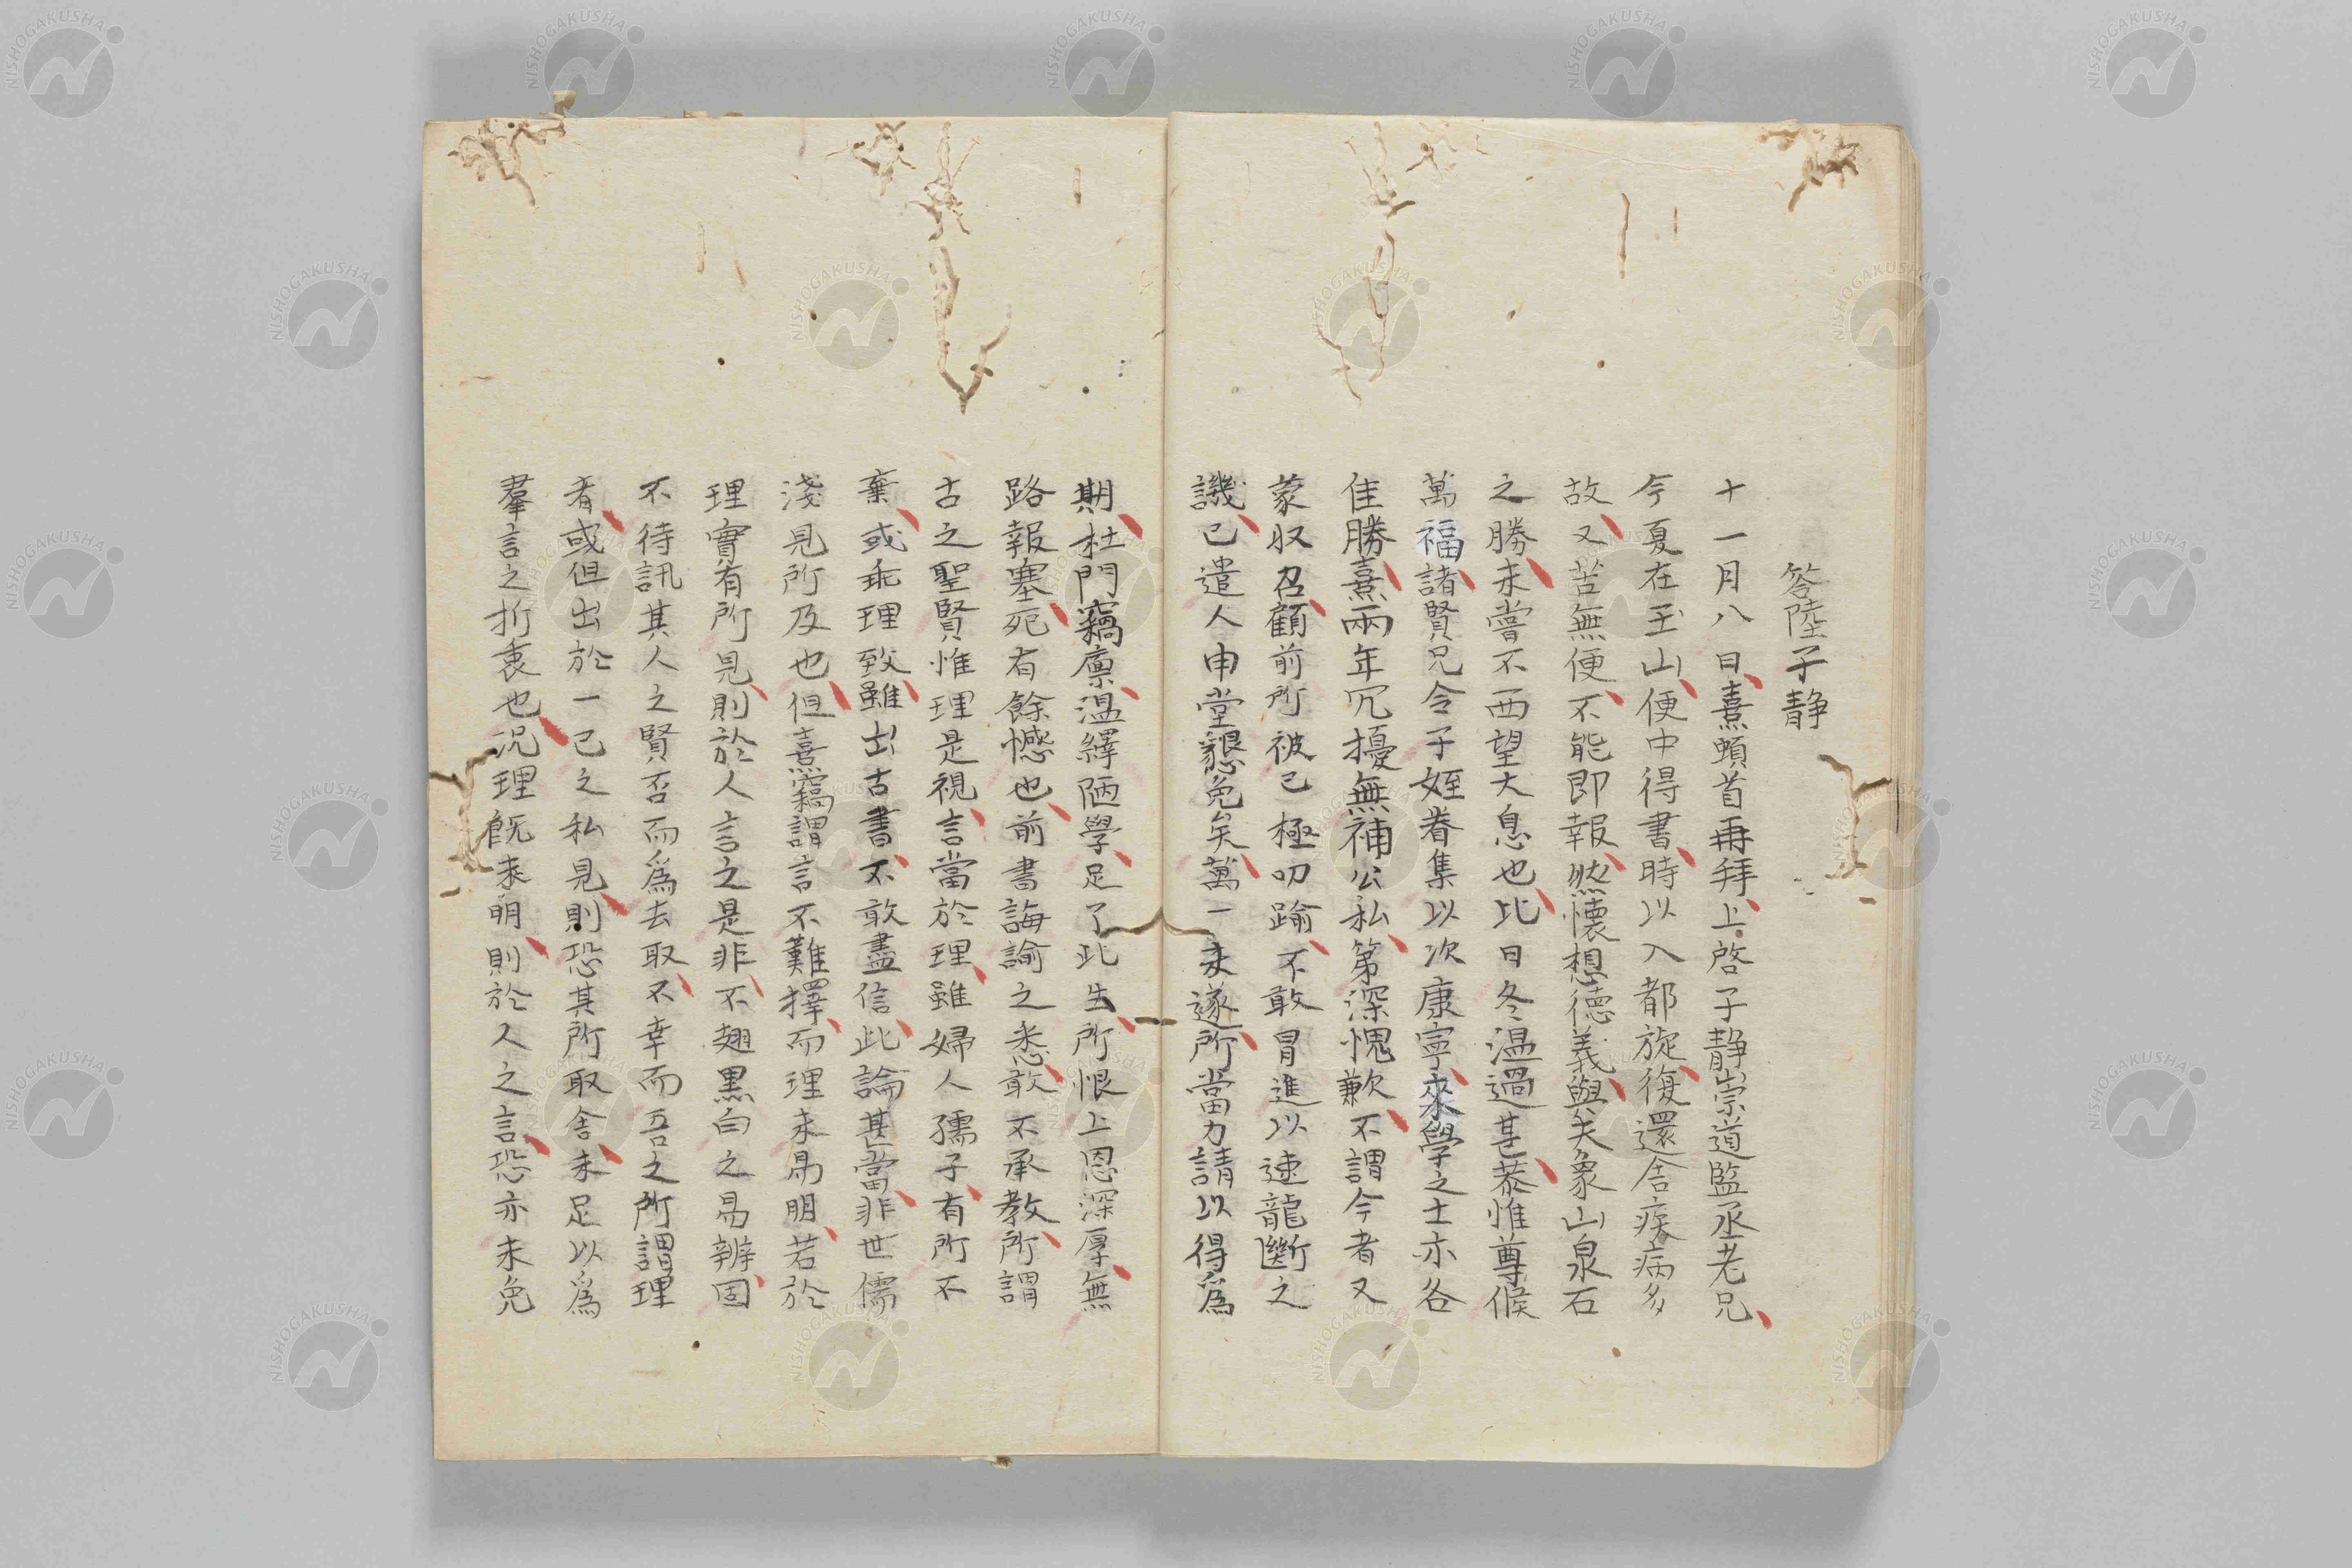 答陸子静
十一月八日熹頓首再拜上啓子静崇道監丞老兄
今夏在玉山便中得書時以入都旋復還舎疾病多
故又苦無便不能即報然懐想徳義與夫象山泉石
之勝未嘗不西望大息也比日冬温過甚恭惟尊候
萬福諸賢兄令子姪眷集以次康寧來學之士亦各
佳勝熹兩年冗擾無補公私第深愧歉不謂今者又
蒙収召顧前所被已極叨踰不敢冒進以速龍斷之
譏已遣人申堂懇免矣萬一未遂所當力請以得爲
期杜門竊廩温繹陋學足了此生所恨上恩深厚無
路報塞死有餘憾也前書誨諭之悉敢不承教所謂
古之聖賢惟理是視言當於理雖婦人孺子有所不
棄或乖理致雖出古書不敢盡信此論甚當非世儒
淺見所及也但熹竊謂言不難擇而理未易明若於
理實有所見則於人言之是非不翅黒白之易辨固
不待訊其人之賢否而爲去取不幸而吾之所謂理
者或但出於一己之私見則恐其所取舎未足以爲
羣言之折衷也况理既未明則於人之言恐亦未免
NISHOGAKUSHA